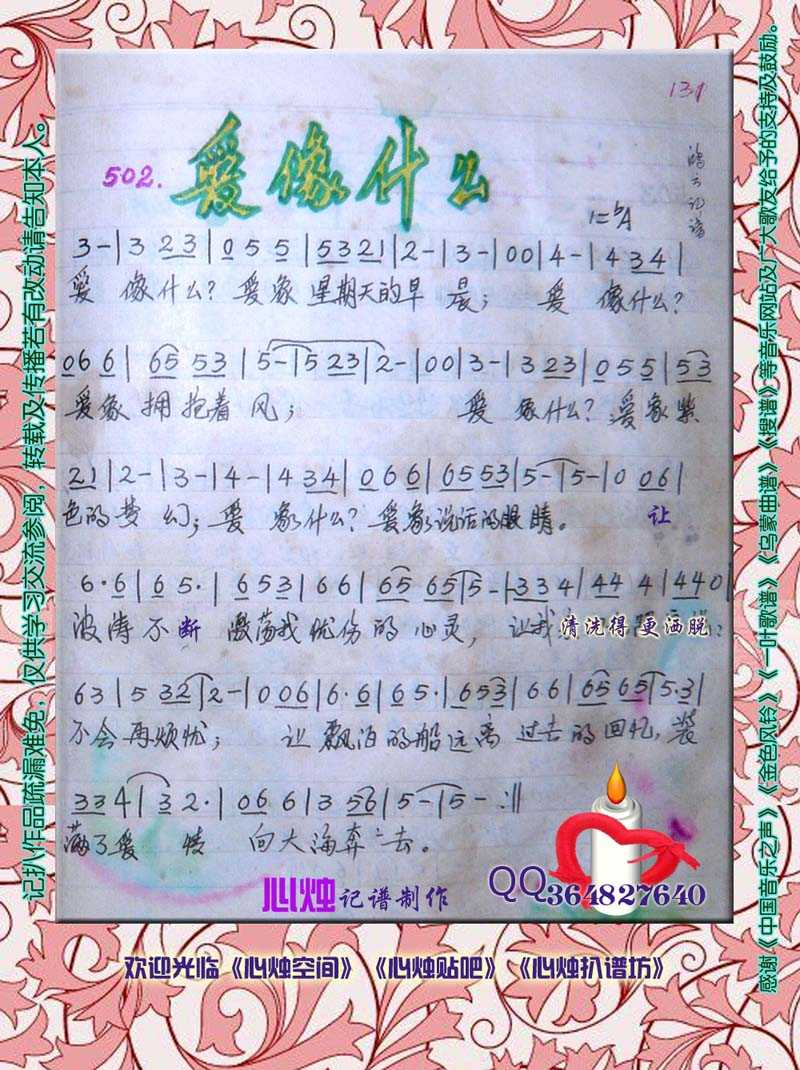 131
502. 爱像什么
1=♭A
3 - | 3 23 | 0 5 5 | 5321 | 2 - | 3 - | 00 | 4 - | 4 34 |
爱 像什么？爱象 星期天的早 晨； 爱 像什么？
06 6 | 65 53 | 5 - | 5 23 | 2 - | 00 | 3 - | 3 23 | 0 5 5 | 53
爱象 拥抱着 风； 爱 象什么？爱象紫
21 | 2 - | 3 - | 4 - | 4 34 | 0 6 6 | 65 53 | 5 - | 5 - | 0 06 |
色的梦 幻；爱 象什么？爱象说话的眼睛。 让
6·6 | 6 5· | 6 53 | 6 6 | 65 65 | 5 - | 33 4 | 44 4 | 440 |
波涛不断 激荡我忧伤的心灵， 让我 清洗得更洒脱
63 | 5 32 | 2 - | 0 06 | 6·6 | 65· | 653 | 66 | 65 65 | 5·3 |
不会再烦忧； 让飘泊的船远离过去的回忆，装
33 4 | 3 2· | 06 6 | 3 56 | 5 - | 5 - :||
满了爱 情 向大海奔 去。
心烛记谱制作
QQ364827640
欢迎光临《心烛空间》《心烛贴吧》《心烛扒谱坊》
记扒作品疏漏难免，仅供学习交流参阅，转载及传播若有改动请告知本人。
感谢《中国音乐之声》《金色风铃》《一叶歌谱》《乌蒙曲谱》《搜谱》等音乐网站及广大歌友给予的支持及鼓励。